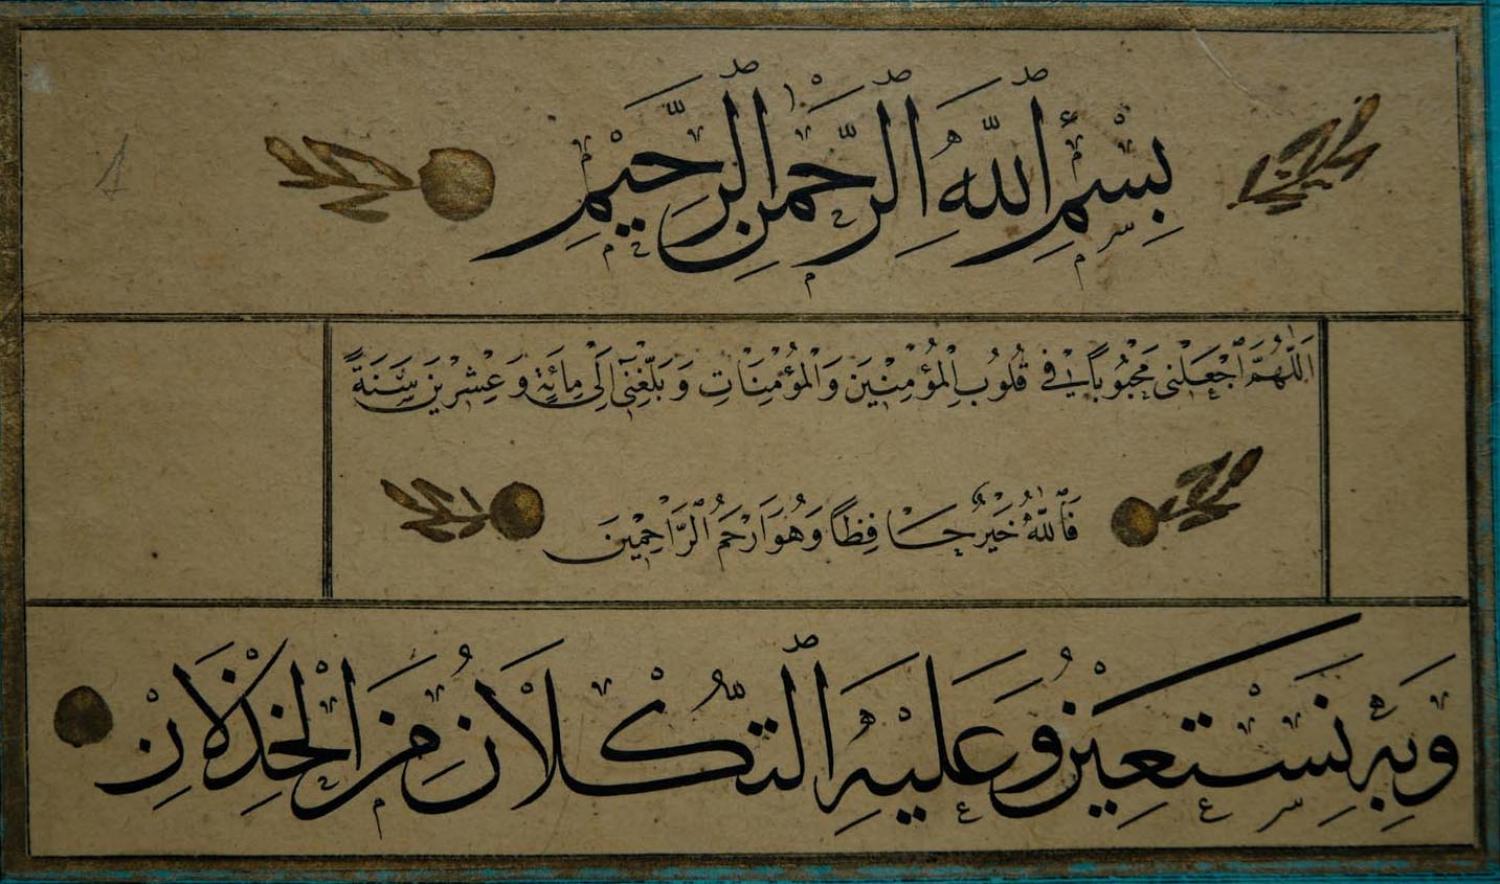 بِسْمِ اللّٰهِ الرَّحْمٰنِ الرَّحِيْمِ
اَللّٰهُمَّ اجْعَلْنِى مَحْبُوبًا فِى قُلُوبِ الْمُؤْمِنِيْنَ وَالْمُؤْمِنَاتِ وَبَلِّغْنِى اِلَى مِائَةٍ وَعِشْرِيْنَ سَنَةً
فَاللّٰهُ خَيْرٌ حَافِظًا وَهُوَ اَرْحَمُ الرَّاحِمِيْنَ
وَبِهِ نَسْتَعِيْنُ وَعَلَيْهِ التُّكْلَانُ مِنَ الْخِذْلَانِ